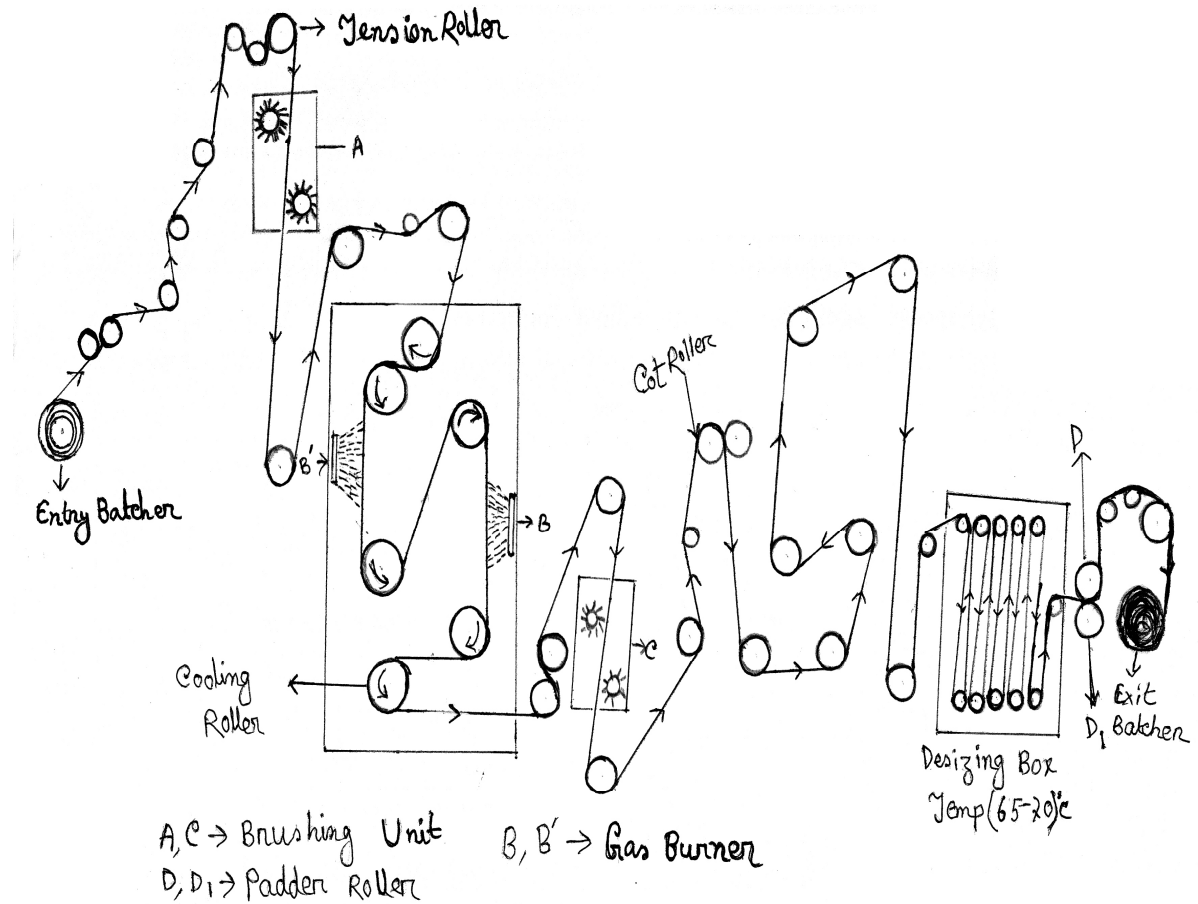 Tension Roller
A
Entry Batcher
B'
B
Cot Roller
C
Cooling
Roller
D
Exit
D₁ Batcher
Desizing Box
Temp (65-70)°C
A, C → Brushing Unit
B, B' → Gas Burner
D, D₁ → Padder Roller